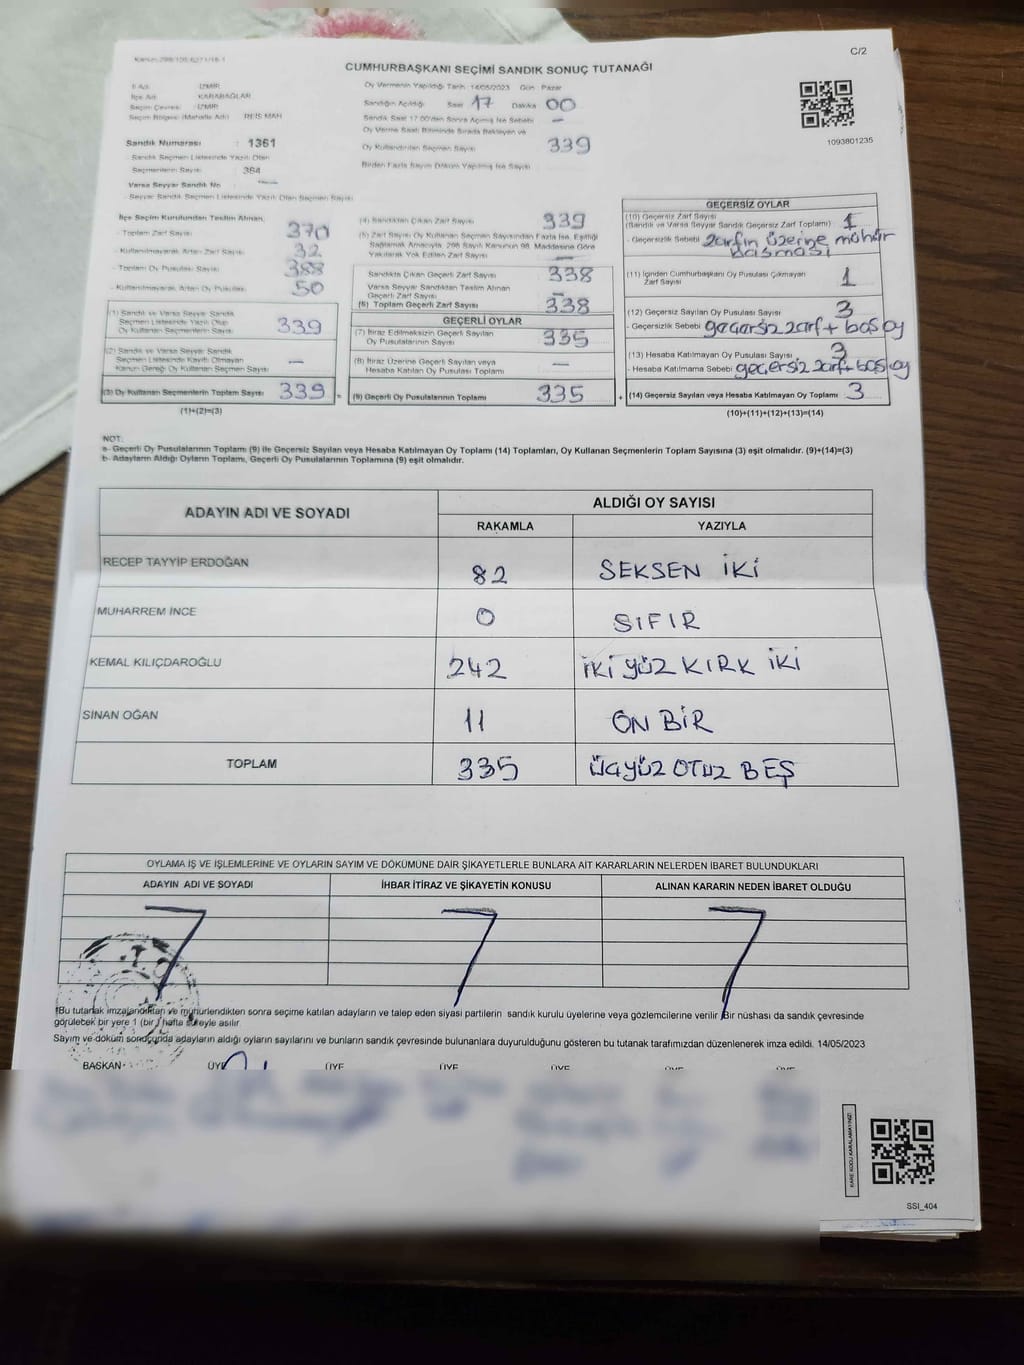 C/2
CUMHURBAŞKANI SEÇİMİ SANDIK SONUÇ TUTANAĞI
İl Adı: İZMİR
İlçe Adı: KARABAĞLAR
Seçim Çevresi: İZMİR
Seçim Bölgesi (Mahalle Adı): REİS MAH
Sandık Numarası : 1361
Sandık Seçmen Listesinde Yazılı Olan
Seçmenlerin Sayısı: 364
Varsa Seyyar Sandık No
Seyyar Sandık Seçmen Listesinde Yazılı Olan Seçmen Sayısı
Oy Vermenin Yapıldığı Tarih: 14/05/2023 Gün: Pazar
Sandığın Açıldığı Saat 17 Dakika 00
Sandık Saat 17:00'den Sonra Açılmış İse Sebebi —
Oy Verme Saati Bitiminde Sırada Bekleyen ve
Oy Kullandırılan Seçmen Sayısı 339
Birden Fazla Sayım Döküm Yapılmış İse Sayısı
1093801235
İlçe Seçim Kurulundan Teslim Alınan;
- Toplam Zarf Sayısı 370
- Kullanılmayarak Artan Zarf Sayısı 32
- Toplam Oy Pusulası Sayısı 388
- Kullanılmayarak Artan Oy Pusulası 50
(1) Sandık ve Varsa Seyyar Sandık
Seçmen Listesinde Yazılı Olup
Oy Kullanan Seçmenlerin Sayısı 339
(2) Sandık ve Varsa Seyyar Sandık
Seçmen Listesinde Kayıtlı Olmayan
Kanun Gereği Oy Kullanan Seçmen Sayısı —
(3) Oy Kullanan Seçmenlerin Toplam Sayısı 339 =
(1)+(2)=(3)
(4) Sandıktan Çıkan Zarf Sayısı 339
(5) Zarf Sayısı Oy Kullanan Seçmen Sayısından Fazla İse, Eşitliği
Sağlamak Amacıyla, 298 Sayılı Kanunun 98. Maddesine Göre
Yakılarak Yok Edilen Zarf Sayısı —
Sandıkta Çıkan Geçerli Zarf Sayısı 338
Varsa Seyyar Sandıktan Teslim Alınan
Geçerli Zarf Sayısı —
(6) Toplam Geçerli Zarf Sayısı 338
GEÇERLİ OYLAR
(7) İtiraz Edilmeksizin Geçerli Sayılan
Oy Pusulalarının Sayısı 335
(8) İtiraz Üzerine Geçerli Sayılan veya
Hesaba Katılan Oy Pusulası Toplamı —
(9) Geçerli Oy Pusulalarının Toplamı 335 +
GEÇERSİZ OYLAR
(10) Geçersiz Zarf Sayısı
(Sandık ve Varsa Seyyar Sandık Geçersiz Zarf Toplamı) 1
- Geçersizlik Sebebi zarfın üzerine mühür
basması
(11) İçinden Cumhurbaşkanı Oy Pusulası Çıkmayan
Zarf Sayısı 1
(12) Geçersiz Sayılan Oy Pusulası Sayısı 3
Geçersizlik Sebebi geçersiz zarf + boş oy
(13) Hesaba Katılmayan Oy Pusulası Sayısı 3
- Hesaba Katılmama Sebebi geçersiz zarf + boş oy
(14) Geçersiz Sayılan veya Hesaba Katılmayan Oy Toplamı 3
(10)+(11)+(12)+(13)=(14)
NOT:
a- Geçerli Oy Pusulalarının Toplamı (9) ile Geçersiz Sayılan veya Hesaba Katılmayan Oy Toplamı (14) Toplamları, Oy Kullanan Seçmenlerin Toplam Sayısına (3) eşit olmalıdır. (9)+(14)=(3)
b- Adayların Aldığı Oyların Toplamı, Geçerli Oy Pusulalarının Toplamına (9) eşit olmalıdır.
ADAYIN ADI VE SOYADI
ALDIĞI OY SAYISI
RAKAMLA YAZIYLA
RECEP TAYYİP ERDOĞAN 82 SEKSEN İKİ
MUHARREM İNCE 0 SIFIR
KEMAL KILIÇDAROĞLU 242 İKİ YÜZ KIRK İKİ
SİNAN OĞAN 11 ON BİR
TOPLAM 335 ÜÇYÜZ OTUZ BEŞ
OYLAMA İŞ VE İŞLEMLERİNE VE OYLARIN SAYIM VE DÖKÜMÜNE DAİR ŞİKAYETLERLE BUNLARA AİT KARARLARIN NELERDEN İBARET BULUNDUKLARI
ADAYIN ADI VE SOYADI İHBAR İTİRAZ VE ŞİKAYETİN KONUSU ALINAN KARARIN NEDEN İBARET OLDUĞU
*Bu tutanak imzalandıktan ve mühürlendikten sonra seçime katılan adayların ve talep eden siyasi partilerin sandık kurulu üyelerine veya gözlemcilerine verilir. Bir nüshası da sandık çevresinde
görülecek bir yere 1 (bir) hafta süreyle asılır
Sayım ve döküm sonucunda adayların aldığı oyların sayılarını ve bunların sandık çevresinde bulunanlara duyurulduğunu gösteren bu tutanak tarafımızdan düzenlenerek imza edildi. 14/05/2023
BAŞKAN ÜYE ÜYE ÜYE ÜYE ÜYE ÜYE
KARE KODU KARALAMAYINIZ!
SSI_404